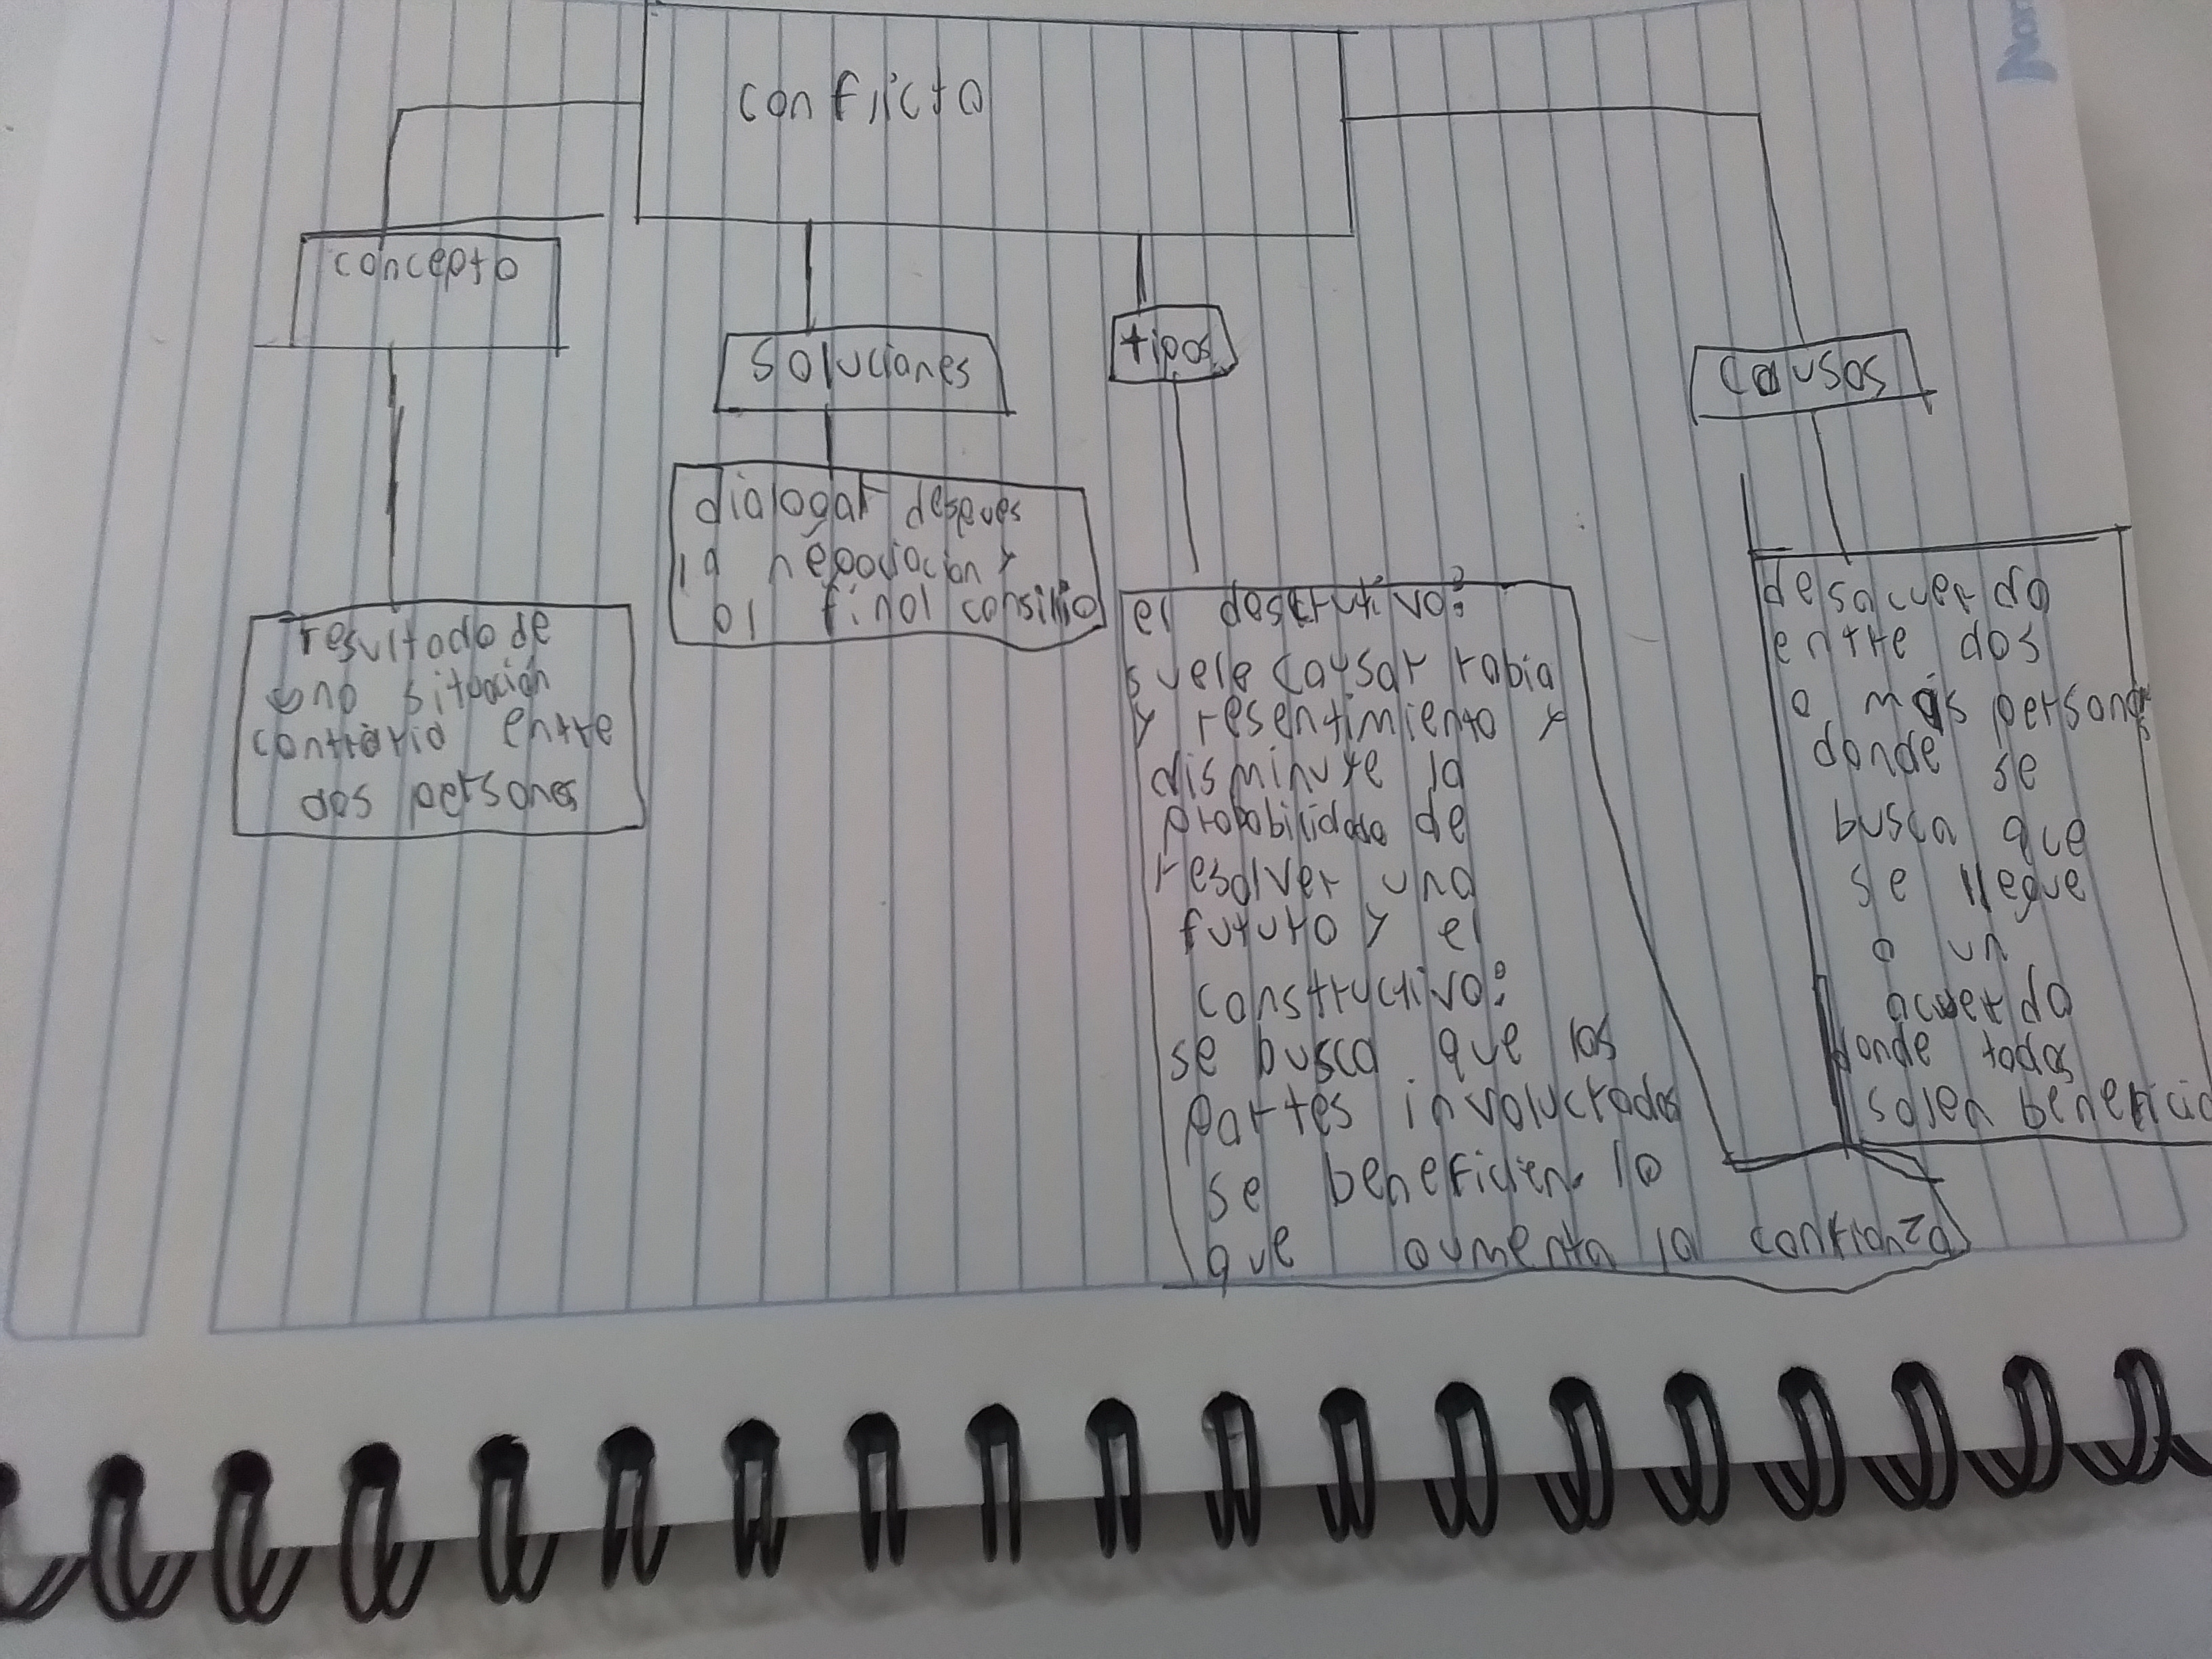 conflicto
concepto
soluciones
tipos
causas
resultado de
una situación
contraria entre
dos personas
dialogar despues
la negociacion y
al final consilio
el destrutivo:
suele causar rabia
y resentimiento y
disminuye la
probabilidad de
resolver una
futuro y el
constructivo:
se busca que las
partes involucradas
se beneficien. lo
que aumenta la confianza
desacuerdo
entre dos
o más personas
donde se
busca que
se llegue
a un
acuerdo
donde todos
salen benefici